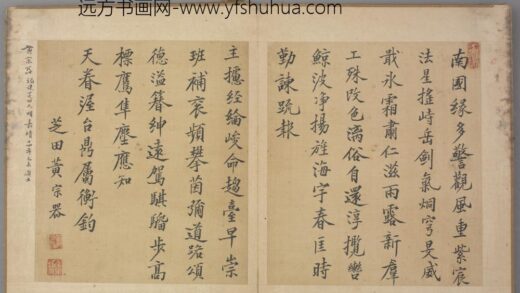 远方书画网-www.yfshuhua.com
南國緣多警觀風重紫宸
法星搖峙岳劍氣烱穹旻威
戢氷霜肅仁滋雨露新羣
工殊改色滿俗自還淳攬轡
鯨波净揚旌海宇春匡時
勤諫䟽報
主擄經綸峻命趨臺早崇
班補衮頻攀茵彌道路頌
德溢簪紳遠駕騏驑步高
標鷹隼塵應知
天眷渥台鼎屬衡鈞
芝田黃宗器